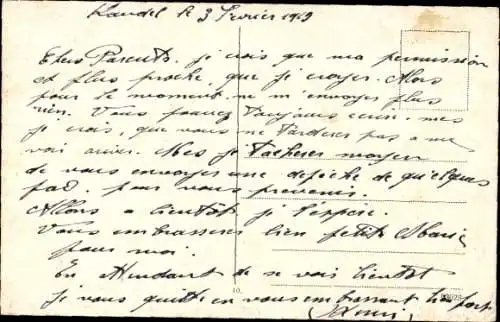 Kandel le 3 Fevrier 1919
Chers Parents. je crois que ma permission
et plus proche que je croyez. Alors
pour le moment ne m'envoyez plus
rien. Vous pouvez toujours ecrire mes
je crois, que vous ne tarderez pas a me
voir arriver. Mes je tacherez moyen
de vous envoyer une depeche de quelques
pour vous prevenir.
Allons a bientôt je l'espere.
Vous embrasserez bien petite Marie
pour moi.
En attendant de se voir bientot
je vous quitte en vous embrassant bien fort
Henri
10.